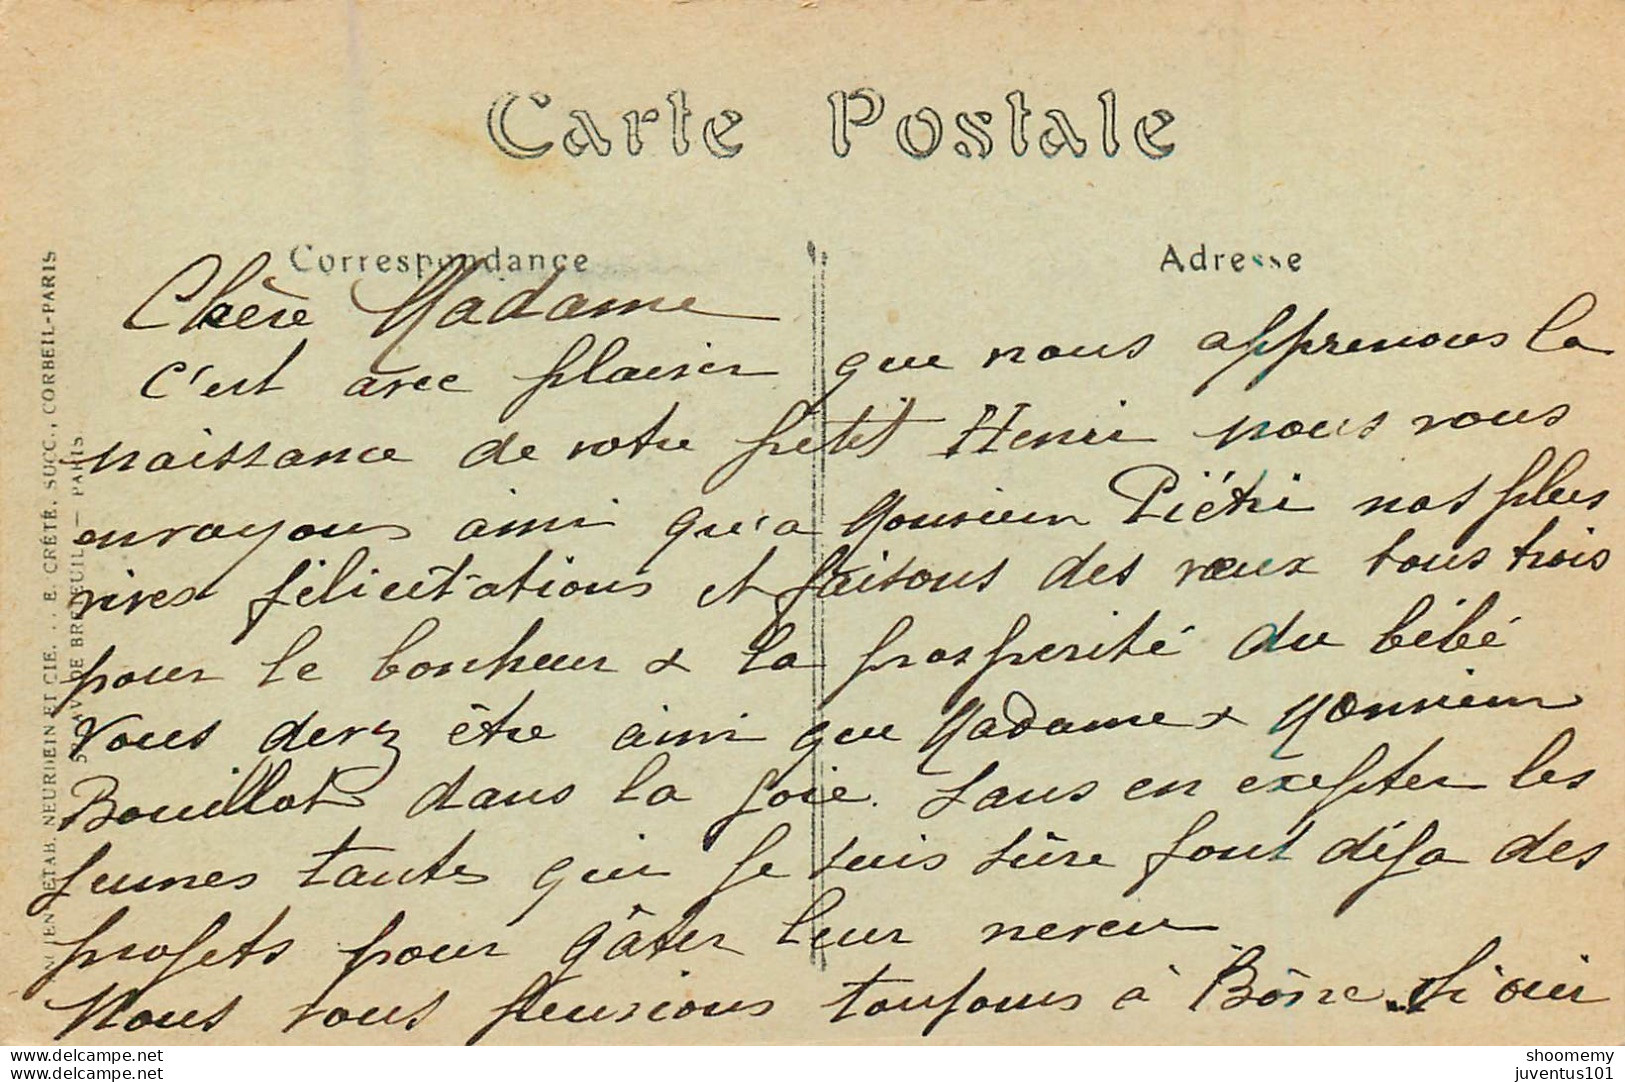 Carte Postale
Correspondance
Adresse
Chère Madame
C'est avec plaisir que nous apprenons la
naissance de votre petit Henri nous vous
envoyons ainsi qu'a Monsieur Piétri nos plus
vives félicitations et faisons des vœux tous trois
pour le bonheur & la prosperité du bébé
Vous devez être ainsi que Madame & Monsieur
Bouillot dans la joie. Sans en exepter les
jeunes tante qui je suis sûre font déja des
projets pour gâter leur neveu
Nous vous pensions toujours à Bône. Si oui
ETAB. NEURDEIN ET CIE. . . E. CRÉTÉ, SUCC., CORBEIL-PARIS
AV. DE BRETEUIL — PARIS
www.delcampe.net
www.delcampe.net
shoomemy
juventus101